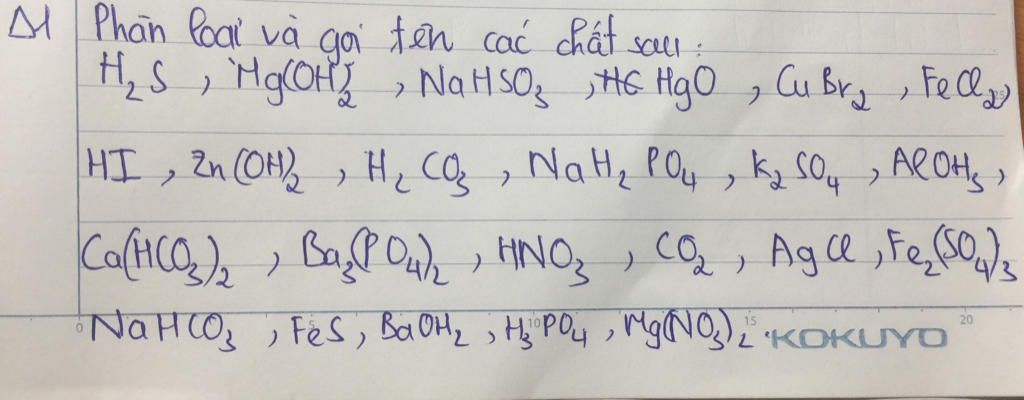 Δ1 Phân loại và gọi tên các chất sau:
H₂S, Mg(OH)₂, NaHSO₃, HgO, CuBr₂, FeCl₂,
HI, Zn(OH)₂, H₂CO₃, NaH₂PO₄, K₂SO₄, AlOH₃,
Ca(HCO₃)₂, Ba₃(PO₄)₂, HNO₃, CO₂, AgCl, Fe₂(SO₄)₃
NaHCO₃, FeS, BaOH₂, H₃PO₄, Mg(NO₃)₂.
0 5 10 15 20
KOKUYO